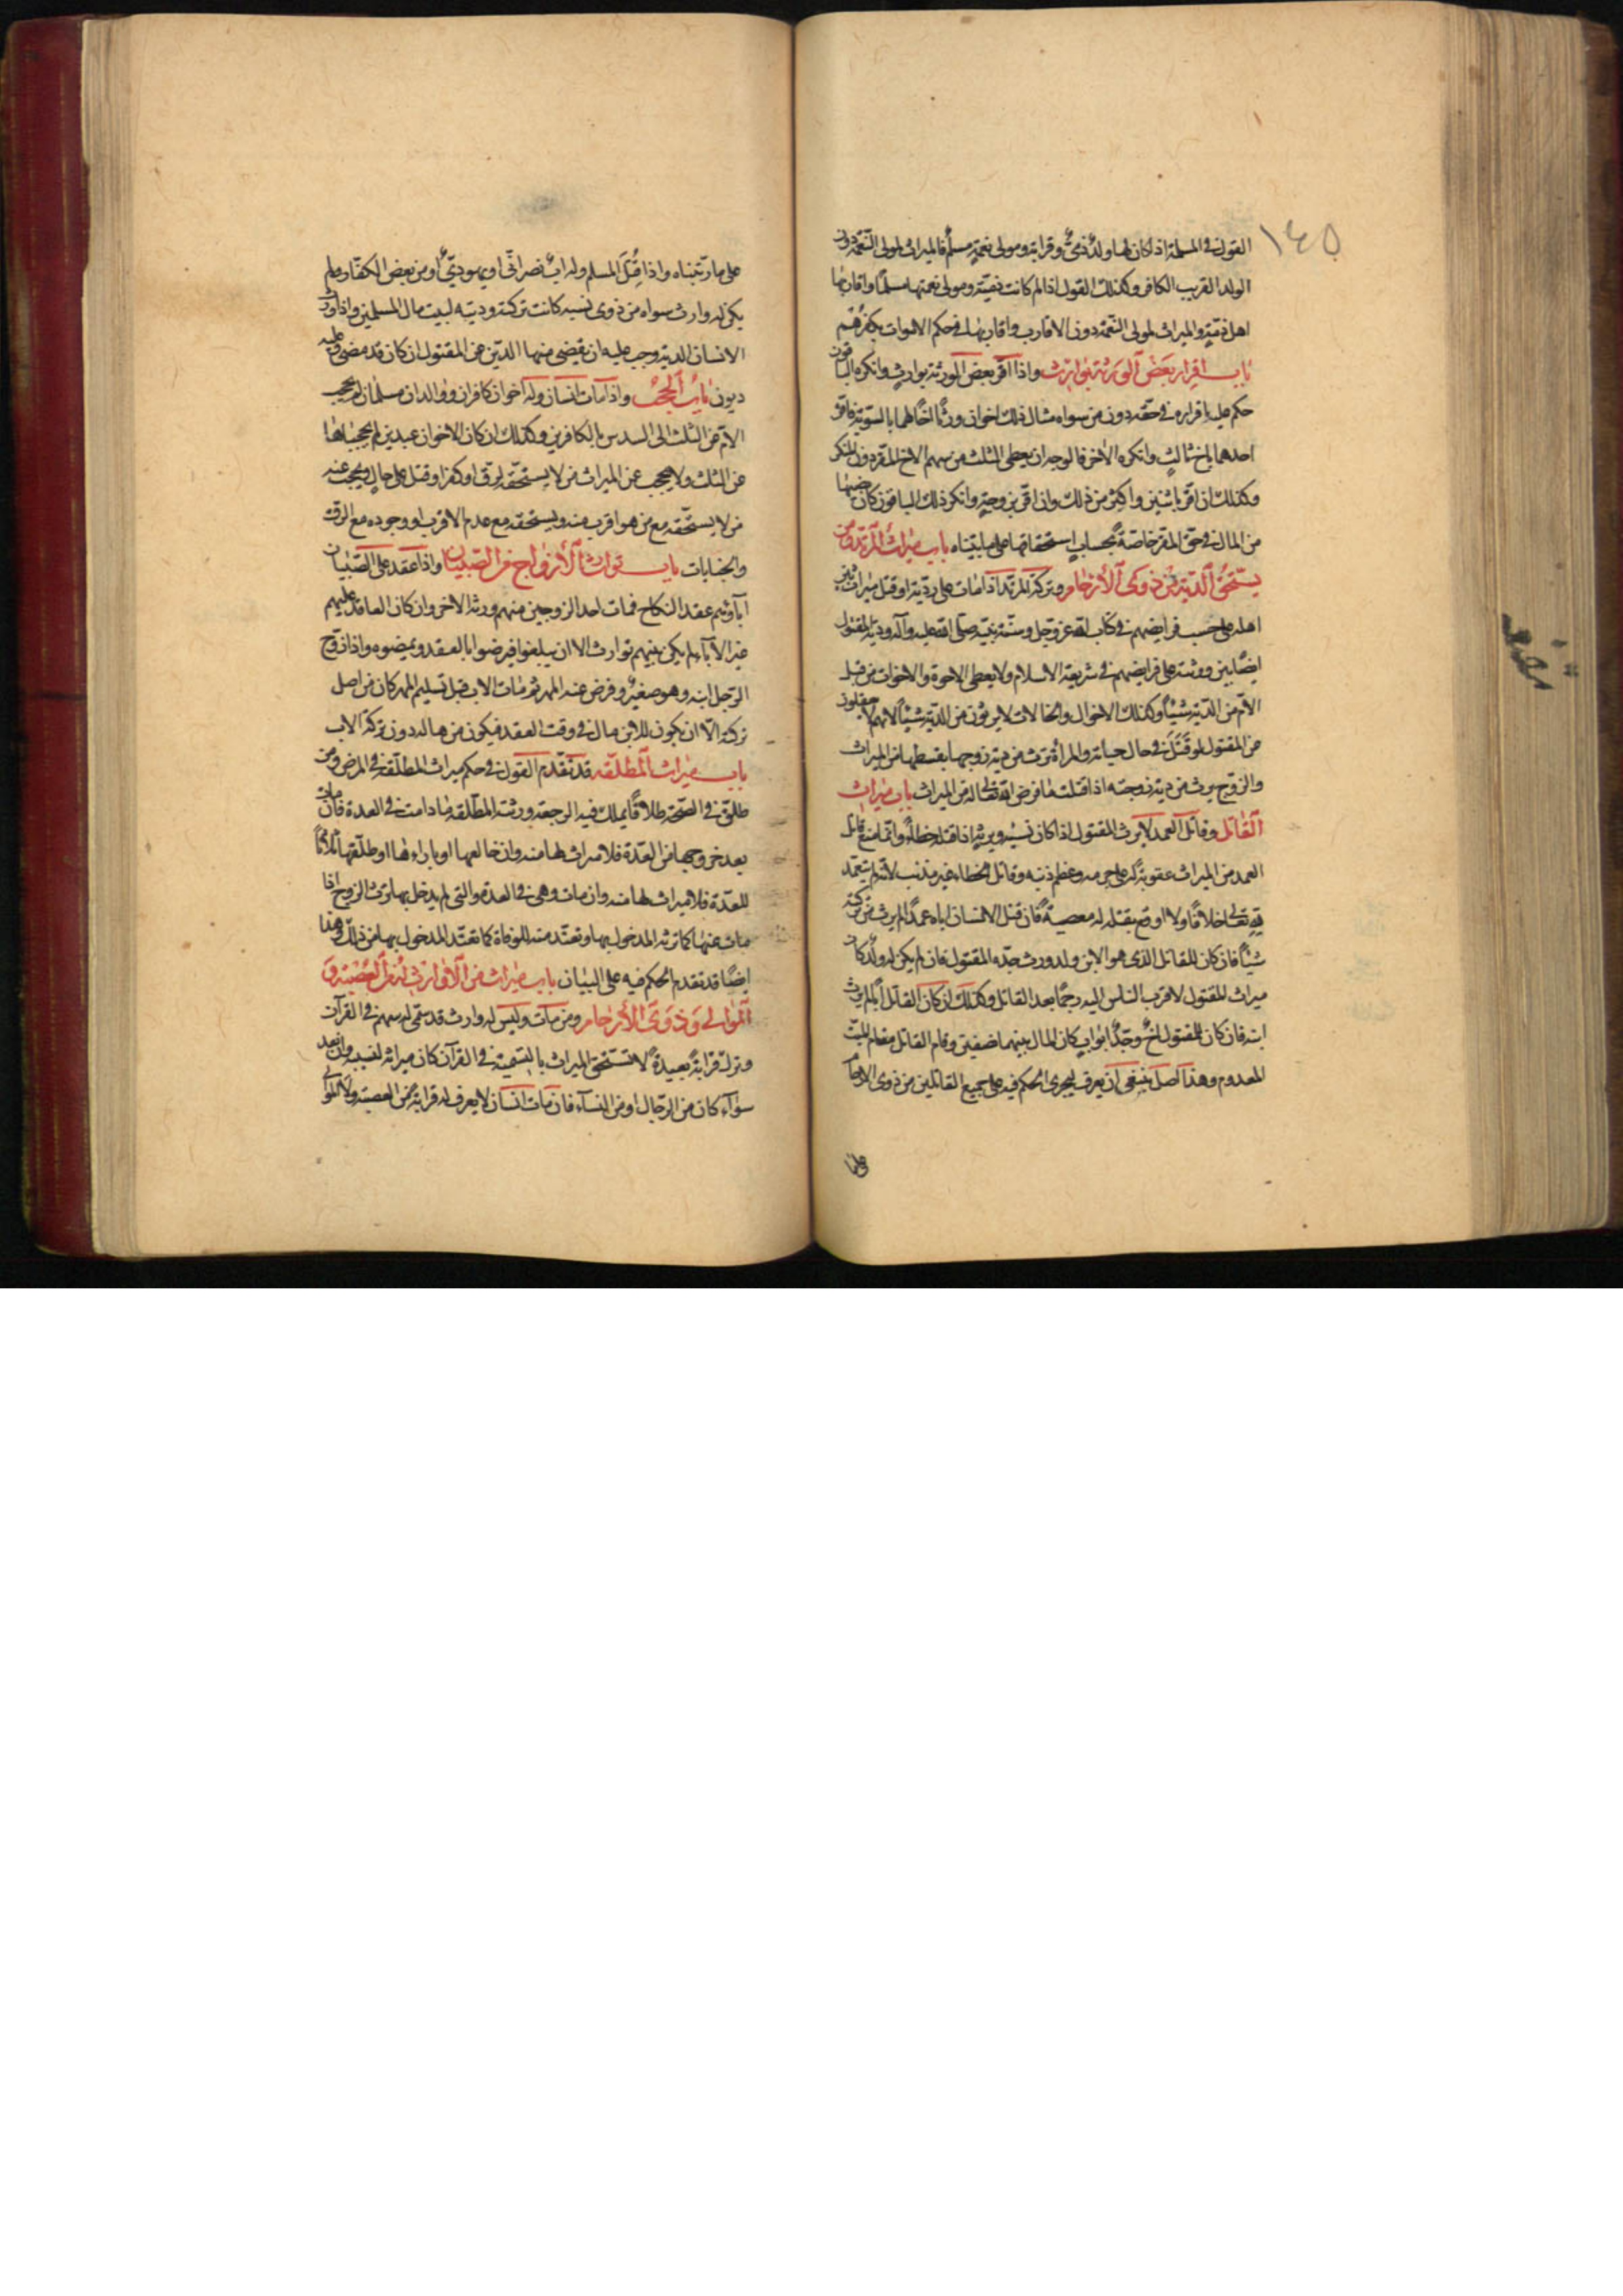 ١٤٥
القول في المسلمة اذا كان لها ولد ذمىّ وقرابة ومولى نعمة مسلم فالميراث لمولى النّعمة دون
الولد القريب الكافر وكذلك القول اذا لم كانت ذميّة ومولى نعمتها مسلما واقاربها
اهل ذمّة والميراث لمولى النّعمة دون الاقارب واقاربها في حكم الاموات بكفرهم
باب اقرار بعض الورثة بوارث واذا اقرّ بعض الورثة بوارث وانكره الباقون
حكم عليه باقراره في حقّه دون من سواه مثال ذلك اخوان ورثا اخا لهما بالسّويّة فاقرّ
احدهما باخ ثالث وانكره الاخر فالوجه ان يعطى الثلث من سهم الاخ المقرّ دون المنكر
وكذلك ان اقرّ باثنين واكثر من ذلك وان اقرّ بزوجة وانكر ذلك الباقون كان حقّها
من المال في حقّ المقرّ خاصّة بحساب استحقاقها على ما بيّناه باب ميراث المرتدّ ومن
يستحقّ الدّية من ذوى الأرحام وتركة المرتدّ اذا مات على ردّته او قتل ميراث بين
اهله على حسب فرايضهم في كتاب الله عزّ وجلّ وسنّة نبيّه صلّى الله عليه وآله ودية المقتول
ايضًا بين ورثته على فرايضهم في شريعة الاسلام ولا يعطى الاخوة والاخوات من قبل
الأم من الدّية شيئًا وكذلك الاخوال والخالات لا يرثون من الدّية شيئًا لانهم لا يعقلون
عن المقتول لو قتل في حال حياته والمرأة ترث من دية زوجها بقسطها من الميراث
والزوج يرث من دية زوجته اذا قتلت ما فرض الله تعالى له من الميراث باب ميراث
القاتل وقاتل العمد لا يرث المقتول اذا كان نسيبه ويرثه اذا قتله خطأً وانّما منع قاتل
العمد من الميراث عقوبة له على جرمه وعظم ذنبه وقاتل الخطاء غير مذنب لانه لم يتعمّد
لله تعالى خلافًا ولا اوقع بقتله له معصيةً فان قتل الانسان اباه عمدًا لم يرث من تركته
شيئًا فان كان للقاتل الذى هو الابن ولد ورث جدّه المقتول فان لم يكن له ولد كان
ميراث المقتول لاقرب الناس اليه رحمًا بعد القاتل وكذلك ان كان القاتل أبًا لم يرث
ابنه فان كان للمقتول اخ وجدّ ابواب كان المال بينهما نصفين وقام القاتل مقام الميّت
المعدوم وهذا اصل ينبغى ان يعرف ليجرى الحكم فيه على جميع القاتلين من ذوى الارحام
على ما
على ما رتّبناه واذا قُتل المسلم وله اب نصرانّى او يهودىّ او من بعض الكفّار ولم
يكن له وارث سواه من ذوى نسبه كانت تركته وديته لبيت مال المسلمين واذا ورث
الانسان الدية وجب عليه ان يقضى منها الدّين عن المقتول ان كان قد مضى وعليه
ديون باب الحجب واذا مات انسان وله اخوان كافران ووالدان مسلمان لم يحجب
الأم عن الثلث الى السدس بالكافرين وكذلك ان كان الاخوان عبدين لم يحجباها
عن الثلث ولا يحجب عن الميراث من لا يستحقّه لرقّ او كفر او قتل على حال ويحجب عنه
من لا يستحّقه مع من هو اقرب منه ويستحقه مع عدم الاقرب او وجوده مع الرقّ
والجنايات باب توارث الأزواج من الصّبيان واذا عقد على الصّبيان
آباؤهم عقد النكاح فمات احد الزوجين منهم ورثه الاخر وان كان العاقد عليهم
غير الآباء لم يكن بينهم توارث الا ان يبلغوا فيرضوا بالعقد ويمضوه واذا زوّج
الرّجل ابنه وهو صغير وفرض عنه المهر ثم مات الاب قبل تسليم المهر كان من اصل
تركته الّا ان يكون للابن مال في وقت العقد فيكون من ماله دون تركة الاب
باب ميراث المطلقه قد تقدّم القول في حكم ميراث المطلّقة في المرض ومن
طلق في الصّحة طلاقًا يملك فيه الرجعة ورثته المطلّقة ما دامت في العدة فان مات
بعد خروجها من العدّة فلا ميراث لها منه وان خالعها او باراها او طلّقها ثلاثًا
للعدّة فلا ميراث لها منه وان مات وهى في العدة والتى لم يدخل بها ترث الزوج اذا
مات عنها كما ترثه المدخول بها وتعتدّ منه للوفاة كما تعتدّ المدخول بها من ذلك وهذا
ايضًا قد تقدم الحكم فيه على البيان باب ميراث من لا وارث له من العصبة و
الموالى وذوى الأرحام ومن مات وليس له وارث قد سمّى له سهم في القرآن
وترك قرابةً بعيدةً لا تستحق الميراث بالتسمية في القرآن كان ميراثه لنسيبه وان بعد
سوآء كان من الرّجال او من النسآء فان مات انسان لا يعرف له قرابة من العصبة ولا الموالى